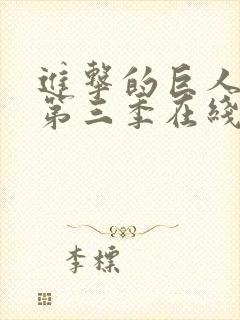 進擊的巨人
第三季在綫
李標